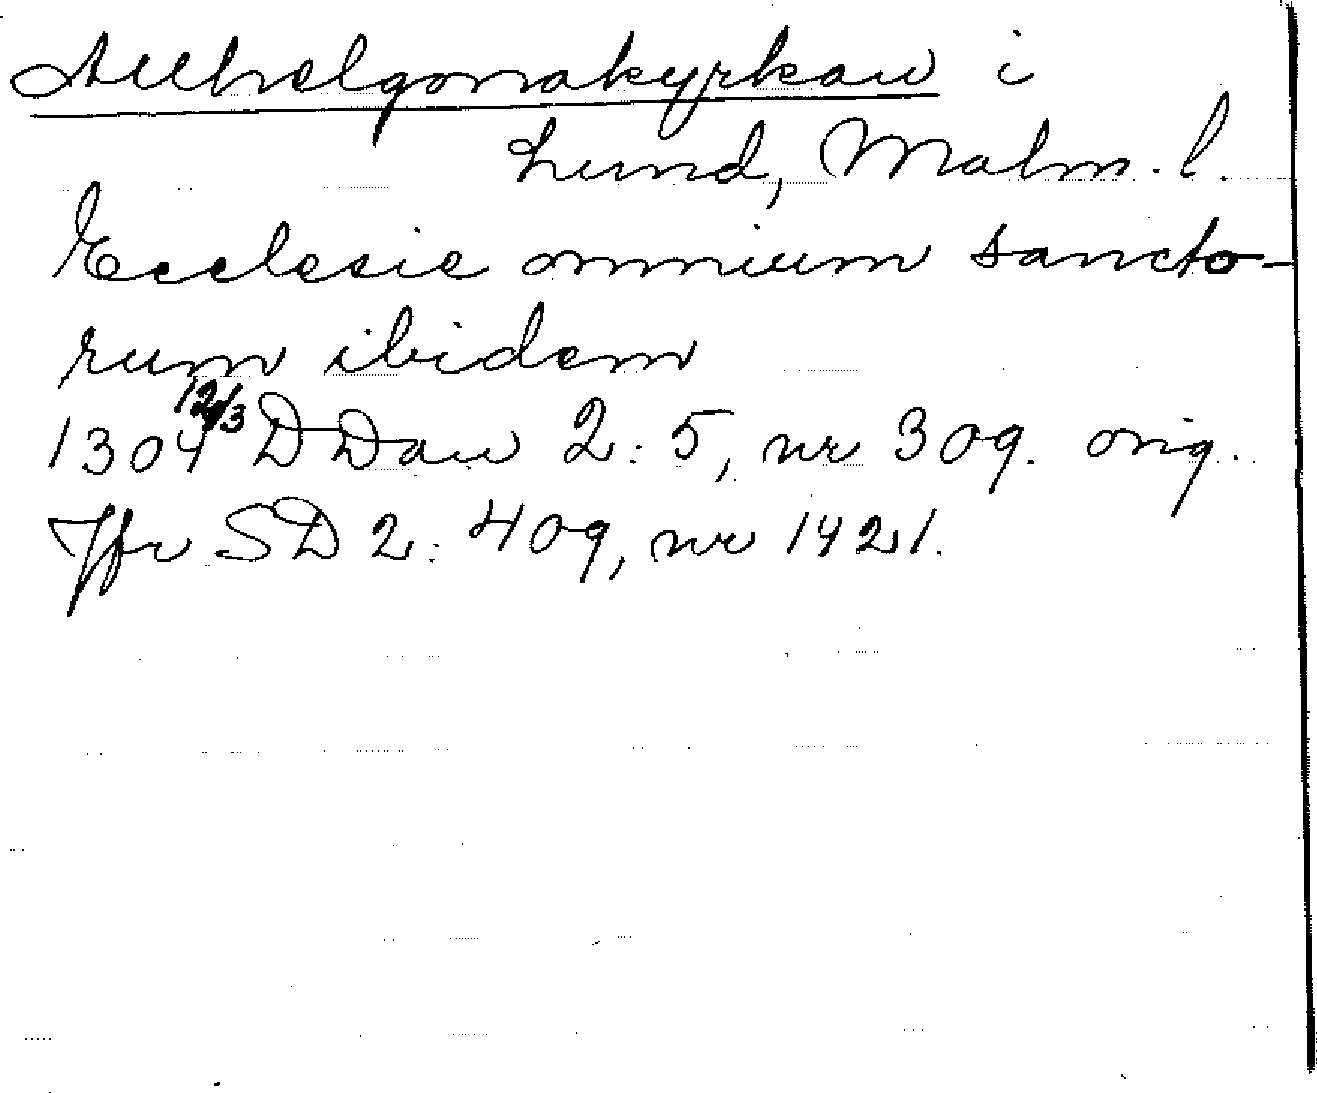 Allhelgonakyrkan i
Lund, Malm. l.
Ecclesie omnium sancto-
rum ibidem
1304 12/3 DDan 2:5, nr 309. orig.
Jfr SD 2:409, nr 1421.